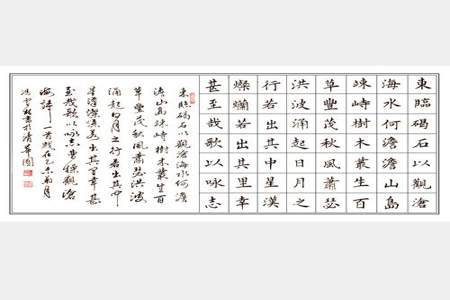 東臨碣石以觀滄
海水何澹澹山島
竦峙樹木叢生百
草豐茂秋風蕭瑟
洪波涌起日月之
行若出其中星漢
燦爛若出其里幸
甚至哉歌以咏志
東臨碣石以觀滄海水何澹
澹山島竦峙樹木叢生百
草豐茂秋風蕭瑟洪波
涌起日月之行若出其中
星漢燦爛若出其里幸甚
至哉歌以咏志曹操觀滄
海詩一首歲在乙未月
書於清華園